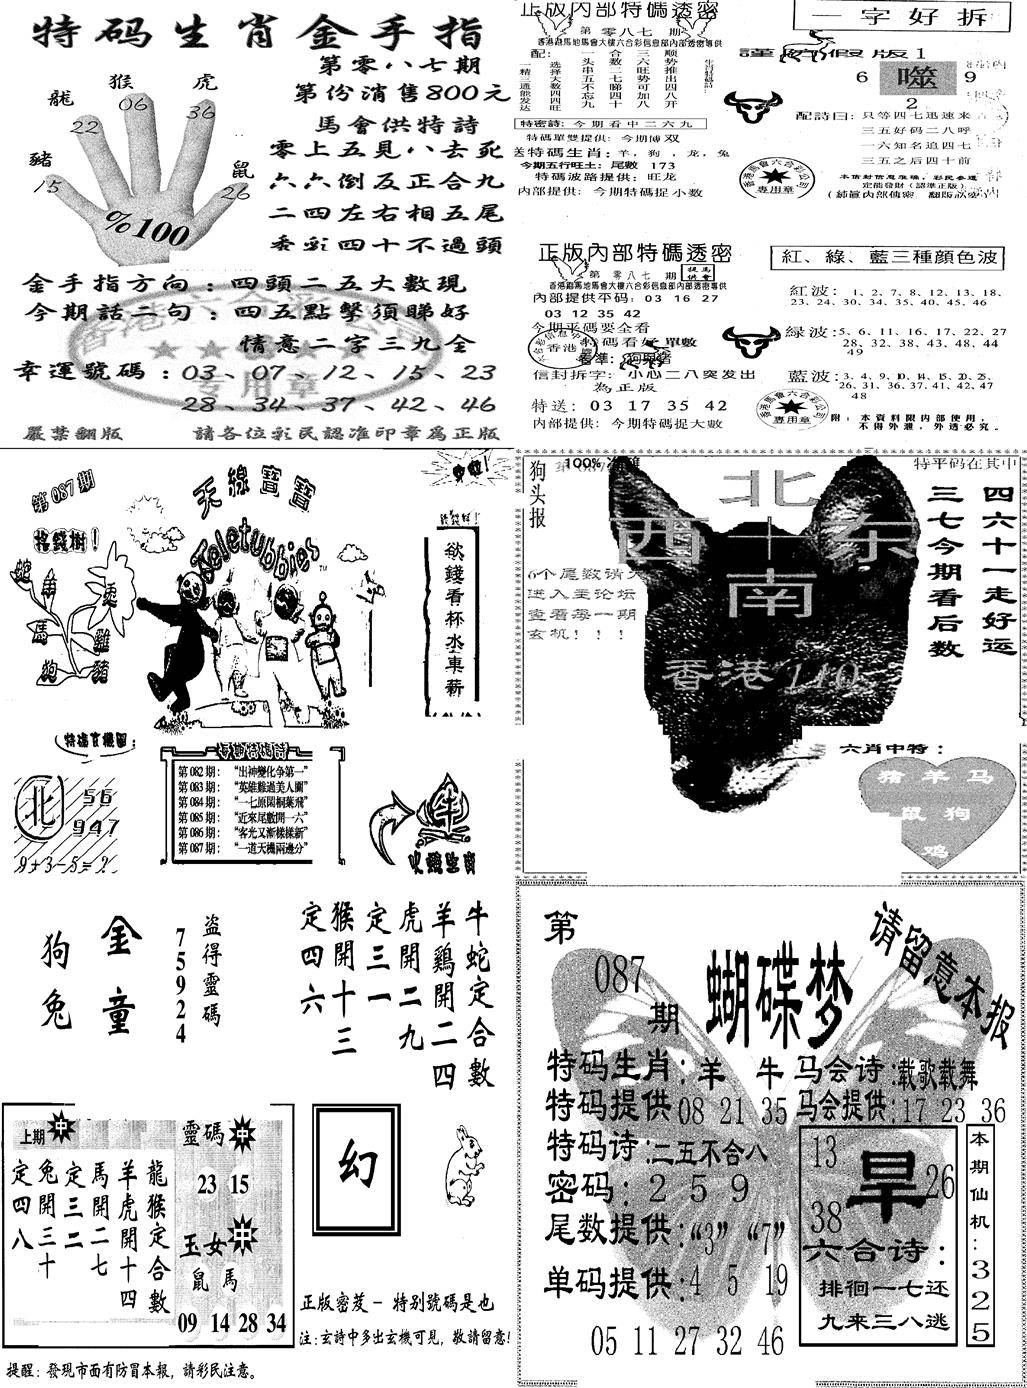 特码生肖金手指
第零八七期
第份消售800元
馬會供特詩
零上五見八去死
六六倒反正合九
二四左右相五尾
香彩四十不過頭
龍
猴
虎
豬
鼠
22
06
36
15
26
%100
金手指方向：四頭二五大數現
今期話二句：四五點擊須睇好
情意二字三九全
幸運號碼：03、07、12、15、23
28、34、37、42、46
專用章
嚴禁翻版 請各位彩民認准印章為正版
正版內部特碼透密
第零八七期
香港跑馬地馬會大樓六合彩信息部內部透密專供
配：
特密詩：今期看中二六九
特碼單雙提供：今期博双
送特碼生肖：羊，狗，龙，兔
今期五行旺土：尾數 173
特碼波路提供：旺龙
内部提供：今期特碼捉小数
一字好拆
謹防假版1
6 噬 9
2
配詩曰：只等四七迅速来
三五好码二八呼
一六知名追四七
三五之后四十前
專用章
定能發財（認準正版）
正版內部特碼透密
第零八七期
香港跑馬地馬會大樓六合彩信息部內部透密專供
內部提供平码：03 16 27
03 12 35 42
今期平碼要全看
特碼看好單數
信封拆字：小心二八突发出
為正版
特送：03 17 35 42
内部提供：今期特碼捉大數
紅、綠、藍三種顔色波
紅波：1、2、7、8、12、13、18、
23、24、30、34、35、40、45、46
緑波：5、6、11、16、17、22、27
28、32、38、43、48、44
49
藍波：3、4、9、10、14、15、20、25、
26、31、36、37、41、42、47
48
專用章
附：本資料限内部使用，
不得外泄，外透必究。
第087期
天線寶寶
Teletubbies
TM
搖錢樹！
馬
狗
雞
豬
欲錢看杯水車薪
特碼玄機圖：
北
56
947
9+3-5=2
第082期：“出神變化争第一”
第083期：“英雄難過美人關”
第084期：“一七原因桐葉飛”
第085期：“近來尾數開一六”
第086期：“客光又漸樣樣新”
第087期：“一道天機兩邊分”
牛
火燒生肖
狗头报
100%
特平码在其中
北
西十东
南
香港110
四六十一走好运
三七今期看后数
6个尾数请大
进入主论坛
查看每一期
玄机！！！
六肖中特：
猪 羊 马
鼠 狗
鸡
狗兔
金童
盗得靈碼
75924
牛蛇定合數
羊鷄開二四
虎開二九
定三一
猴開十三
定四六
上期中
龍猴定合數
羊虎開十四
馬開二七
定三二
兔開三十
定四八
靈碼中
23 15
玉女中
鼠 馬
09 14 28 34
幻
正版密茇－特别號碼是也
注：玄詩中多出玄機可見，敬請留意！
提醒：發現市面有防冒本報，請彩民注意。
第
087
期
蝴蝶梦
请留意本报
特码生肖：羊 牛
特码提供：08 21 35
特码诗：二五不合八
密码：2 5 9
尾数提供：“3” “7”
单码提供：4 5 19
05 11 27 32 46
马会诗：载歌载舞
马会提供：17 23 36
13
旱
26
38
六合诗：
排徊一七还
九来三八逃
本期仙机：325